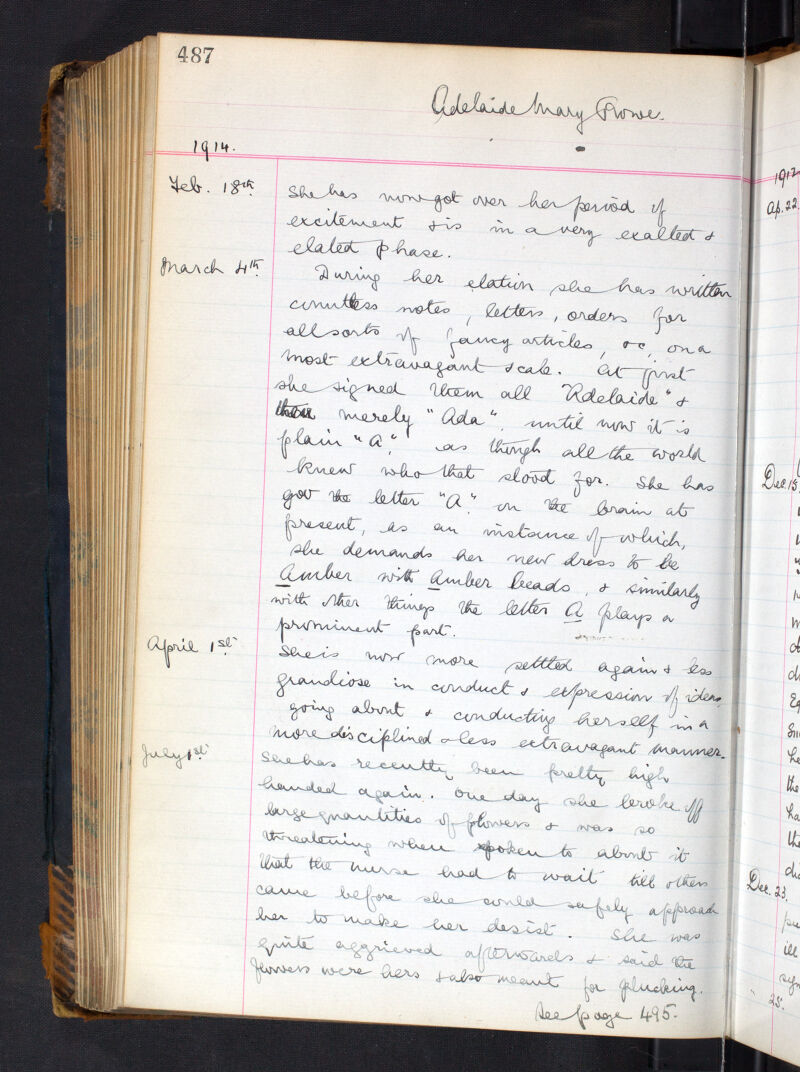 487
Adelaide Mary Growe.
1914.
Feb. 18th She has now got over her period of
excitement & is in a very exalted &
elated phase.
March 4th During her elation she has written
countless notes, letters, orders for
all sorts of fancy articles, &c, on a
most extravagant scale. At first
she signed them all "Adelaide" &
then merely "Ada", until now it is
plain "A", as though all the world
knew who that stood for. She has
got the letter "A" on the brain at
present, as an instance of which,
she demands her new dress to be
Amber with Amber beads, & similarly
with other things the letter A plays a
prominent part.
April 1st She is now more settled again & less
grandiose in conduct & expression of ideas,
going about & conducting herself in a
more disciplined & less extravagant manner.
July 1st She has recently been pretty high
handed again. One day she broke off
large quantities of flowers & was so
threatening when spoken to about it
that the nurse had to wait till others
came before she could safely approach
her to make her desist. She was
quite aggrieved afterwards & said the
flowers were hers & also meant for plucking.
See page 495.
1912
Ap. 22.
Dec. 13
Dec. 23.
" 25.